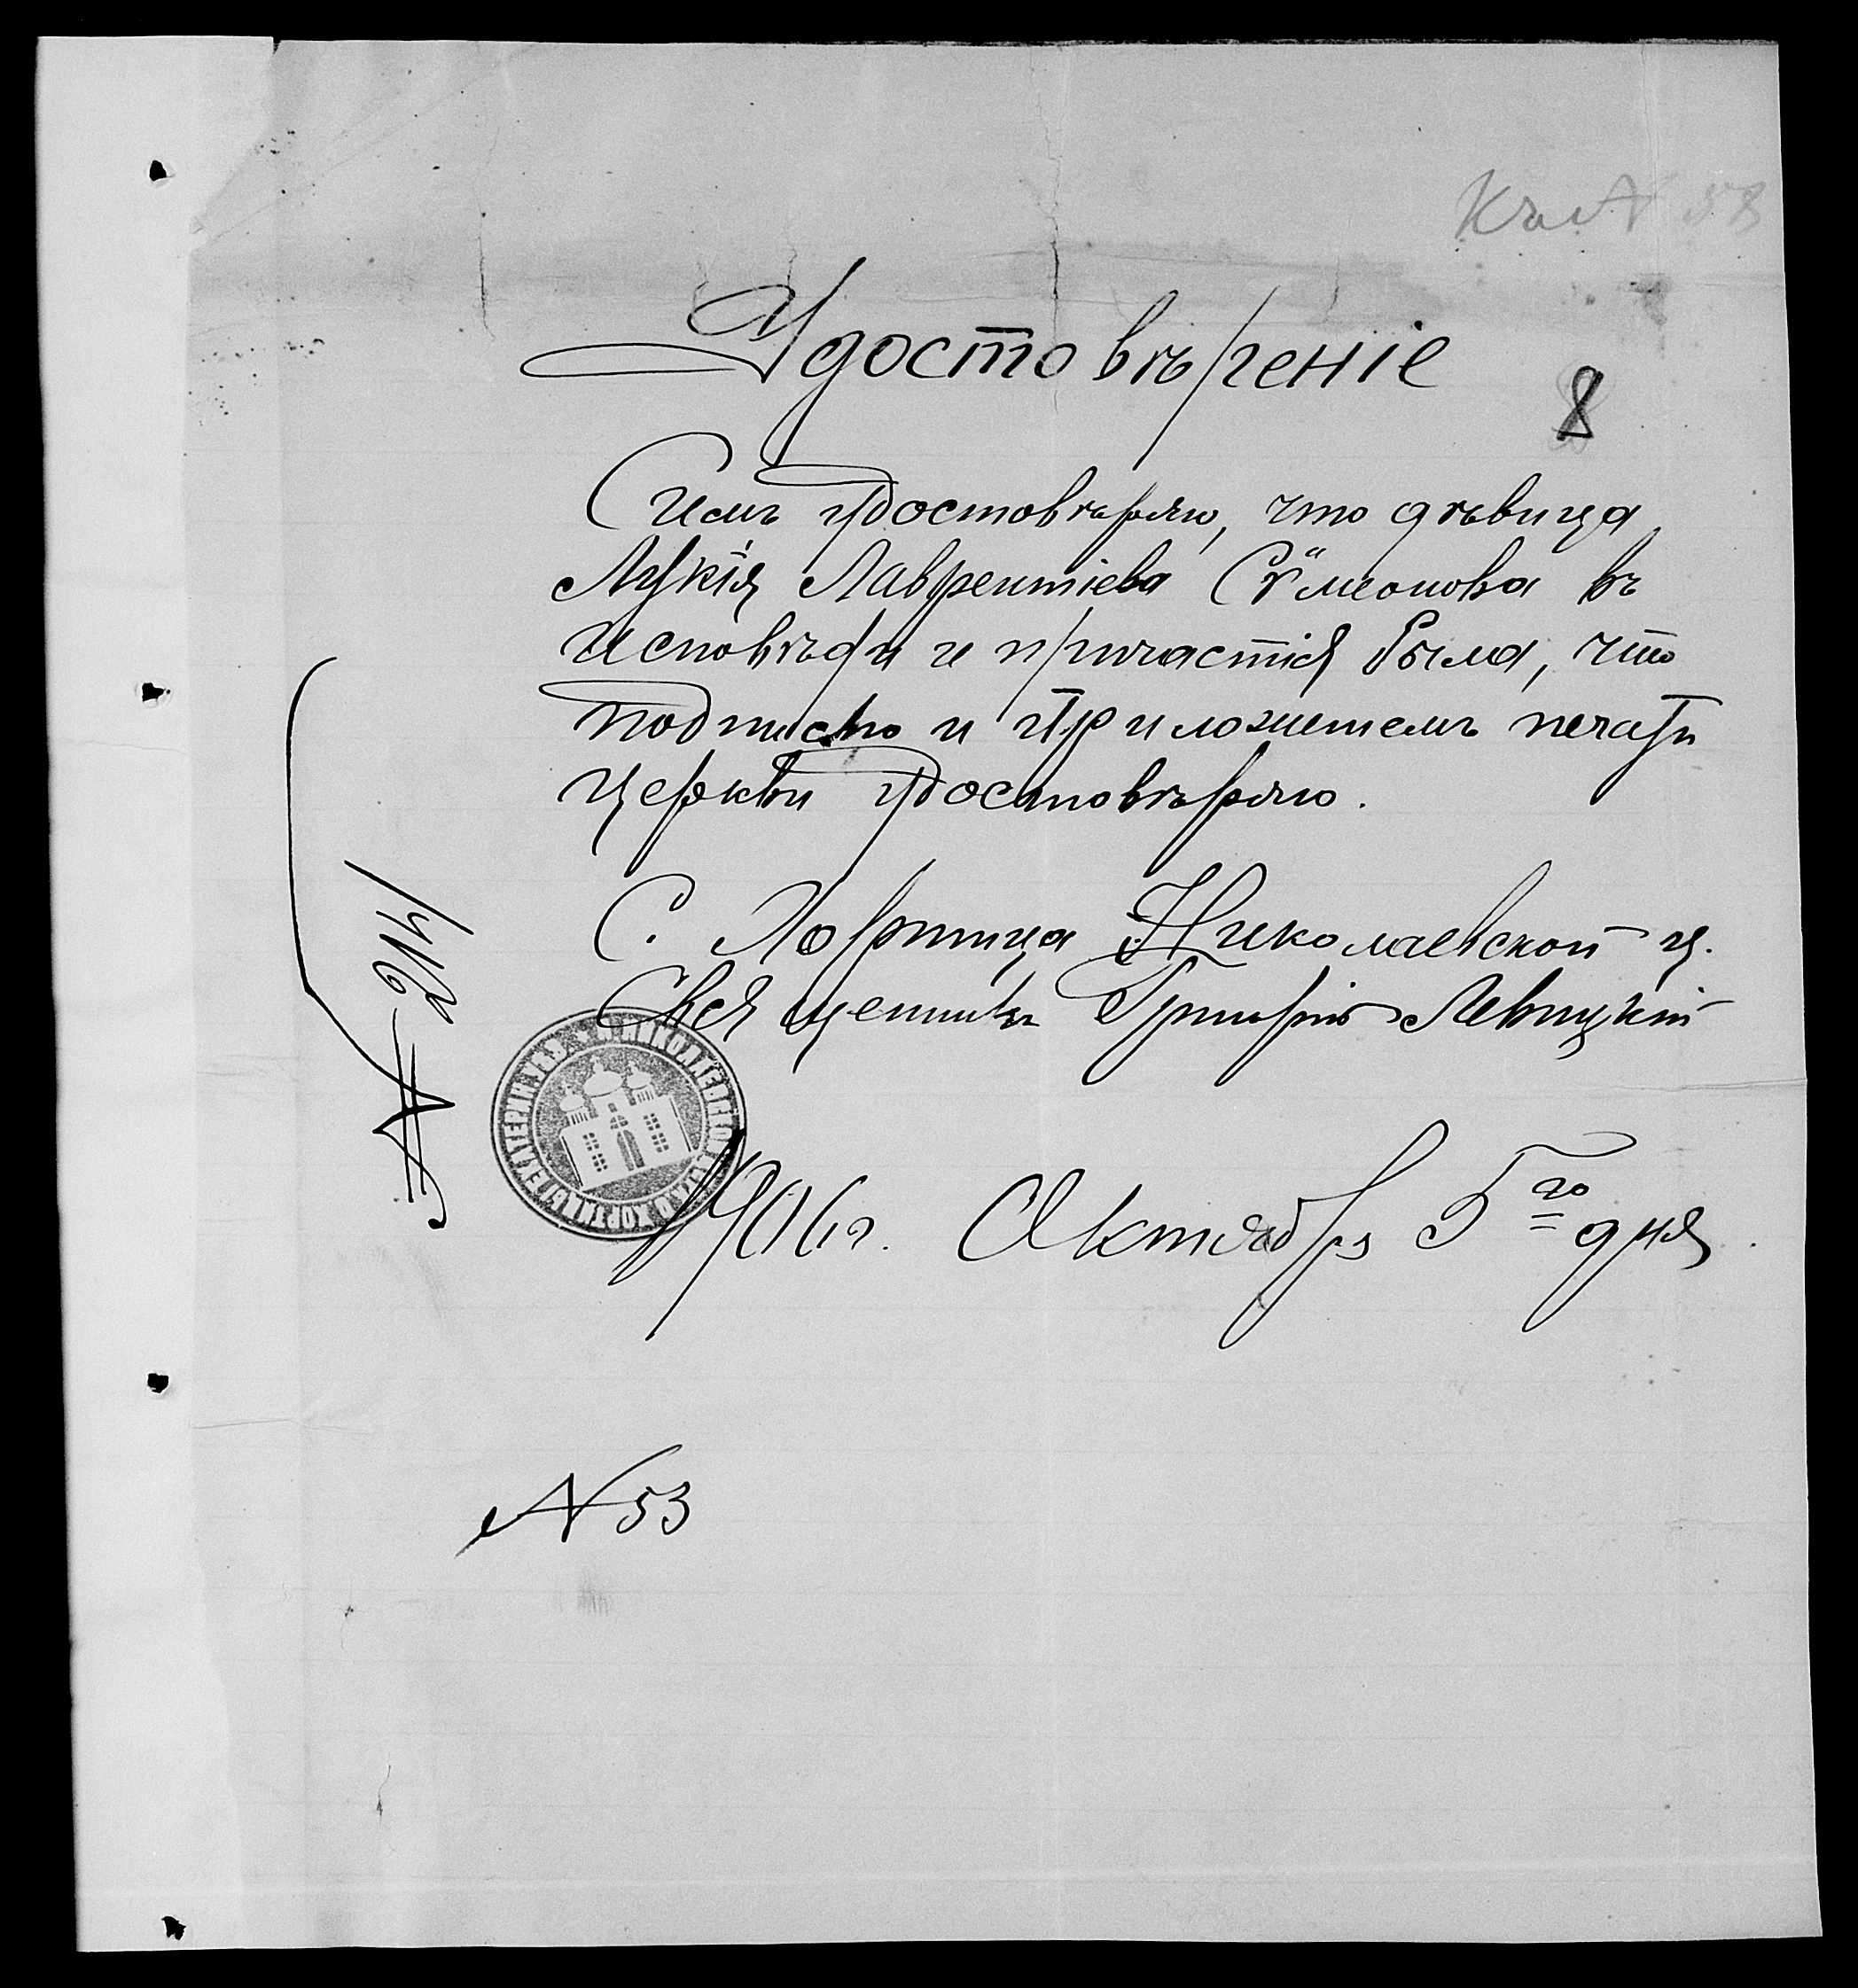 Къ № 58
Удостовѣреніе
8
Симъ удостовѣряю, что дѣвица
Лукія Лаврентіева Сѵмеонова въ
исповѣди и причастія была, что
подписью и приложеніемъ печати
церкви удостовѣряю.
С. Хортица Николаевской ц.
Священникъ Григорій Левицкій
1906 г. Октября 5го дня.
№ 53